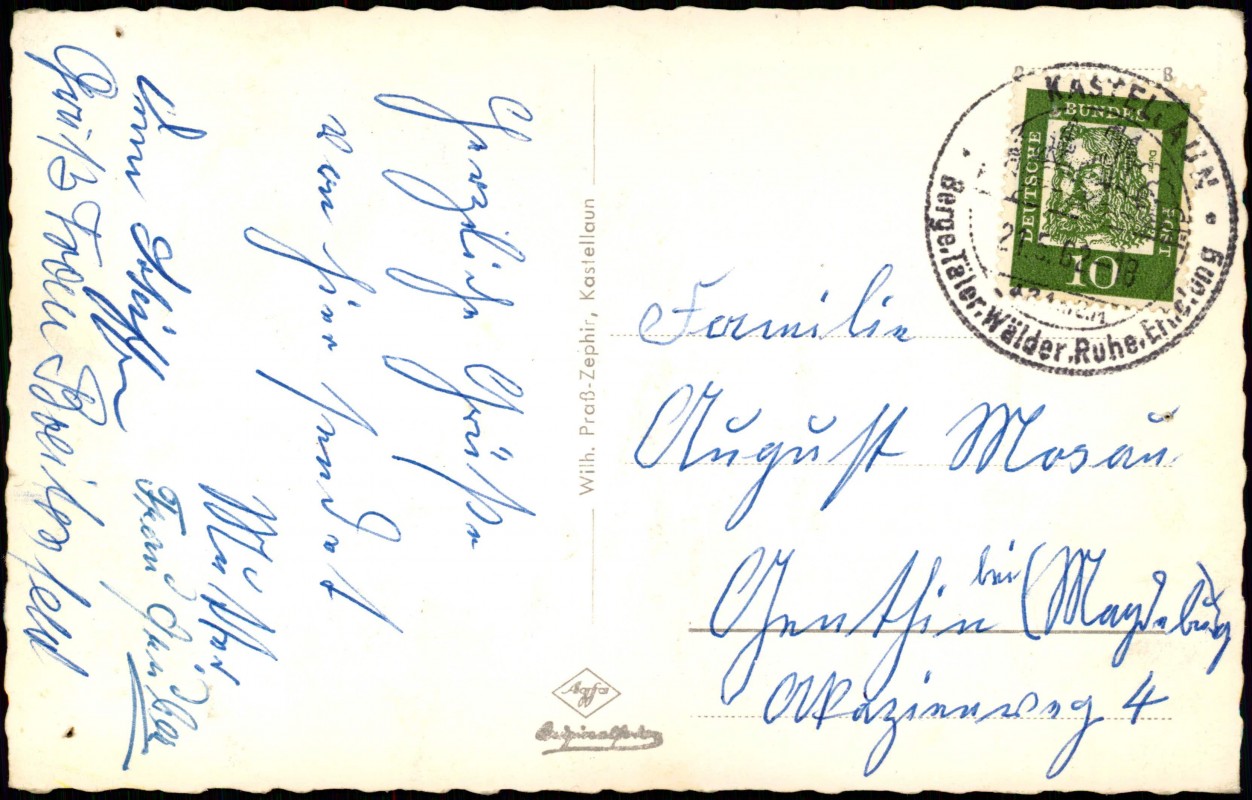 Herzliche Grüße
von hier sendet
Mutter
Frau Gaidber
Gruß Frau Breitersfeld
Wilh. Praß-Zephir, Kastellaun
Agfa
Originalfoto
KASTELLAUN
Berge, Täler, Wälder, Ruhe, Erholung
21.5.62-18
DEUTSCHE
BUNDES
POST
10
Familie
August Mosau
Genthin bei (Magdeburg)
Akazienweg 4